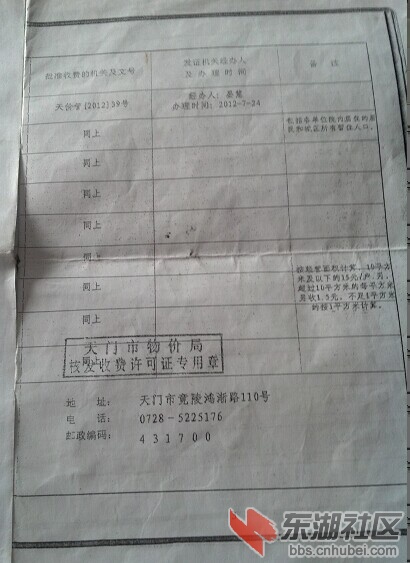 批准收费的机关及文号
发证机关经办人
及办理时间
备注
天价管[2012]39号
经办人：晏慧
办理时间：2012-7-24
同上
包括各单位院内居住的居
民和城区所有暂住人口。
同上
同上
同上
同上
同上
按经营面积计算，10平方
米及以下的15元/户.月，
超过10平方米的每平方米
月收1.5元，不足1平方米
的按1平方米计算。
同上
天门市物价局
同上
核发收费许可证专用章
地 址： 天门市竟陵鸿渐路110号
电 话： 0728-5225176
邮政编码： 431700
东湖社区
bbs.cnhubei.com